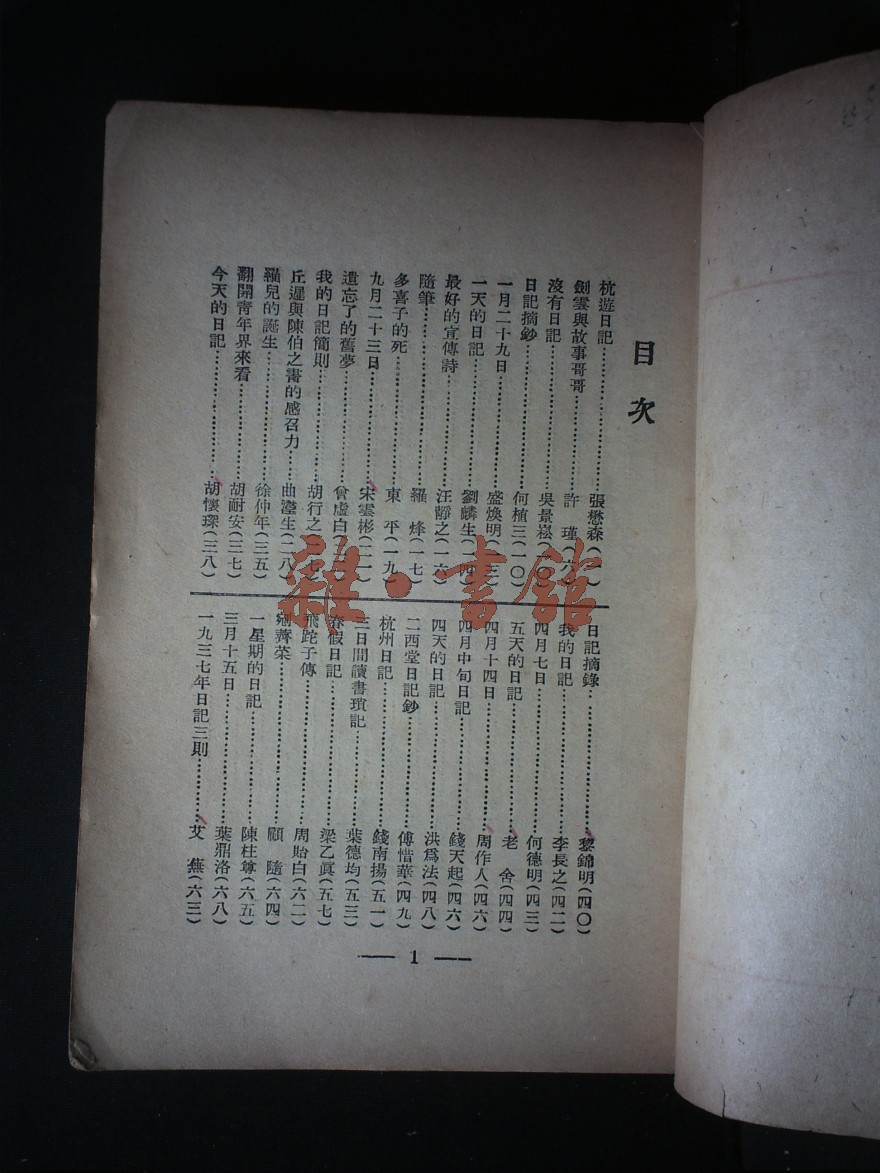 目次
杭遊日記……張懋森(一)
劍雲與故事哥哥……許瑾(六)
沒有日記……吳景崧(一〇)
日記摘鈔……何植三(一〇)
一月二十九日……盛煥明(一三)
一天的日記……劉麟生(一四)
最好的宣傳詩……汪靜之(一六)
隨筆……羅烽(一七)
多喜子的死……東平(一九)
九月二十三日……宋雲彬(二一)
遺忘了的舊夢……曾虛白
我的日記簡則……胡行之
丘遲與陳伯之書的感召力……曲瀅生(二八)
羅兒的誕生……徐仲年(三五)
翻開青年界來看……胡耐安(三七)
今天的日記……胡懷琛(三八)
日記摘錄……黎錦明(四〇)
我的日記……李長之(四二)
四月七日……何德明(四三)
五天的日記……老舍(四四)
四月十四日……周作人(四六)
四月中旬日記……錢天起(四六)
四天的日記……洪爲法(四八)
二西堂日記鈔……傅惜華(四九)
杭州日記……錢南揚(五一)
三日間讀書瑣記……葉德均(五三)
春假日記……梁乙眞(五七)
飛跎子傳……周貽白(六二)
剜薺菜……顧隨(六四)
一星期的日記……陳柱尊(六五)
三月十五日……葉鼎洛(六八)
一九三七年日記三則……艾蕪(六三)
— 1 —
雜·書館